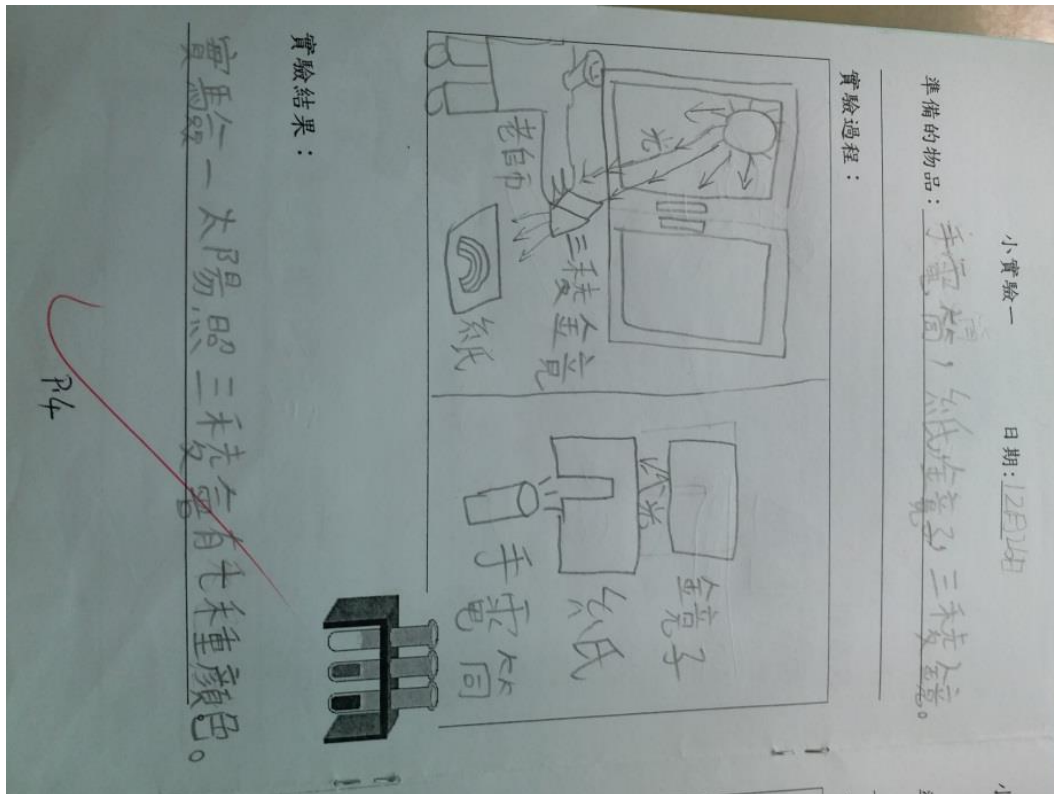 小實驗一 日期：12月26日
準備的物品：手電筒，紙，鏡子，三稜鏡。
實驗過程：
光
老師
三稜鏡
紙
鏡子
光
紙
手電筒
實驗結果：
實驗一太陽照三稜會有七種顏色。
P.4